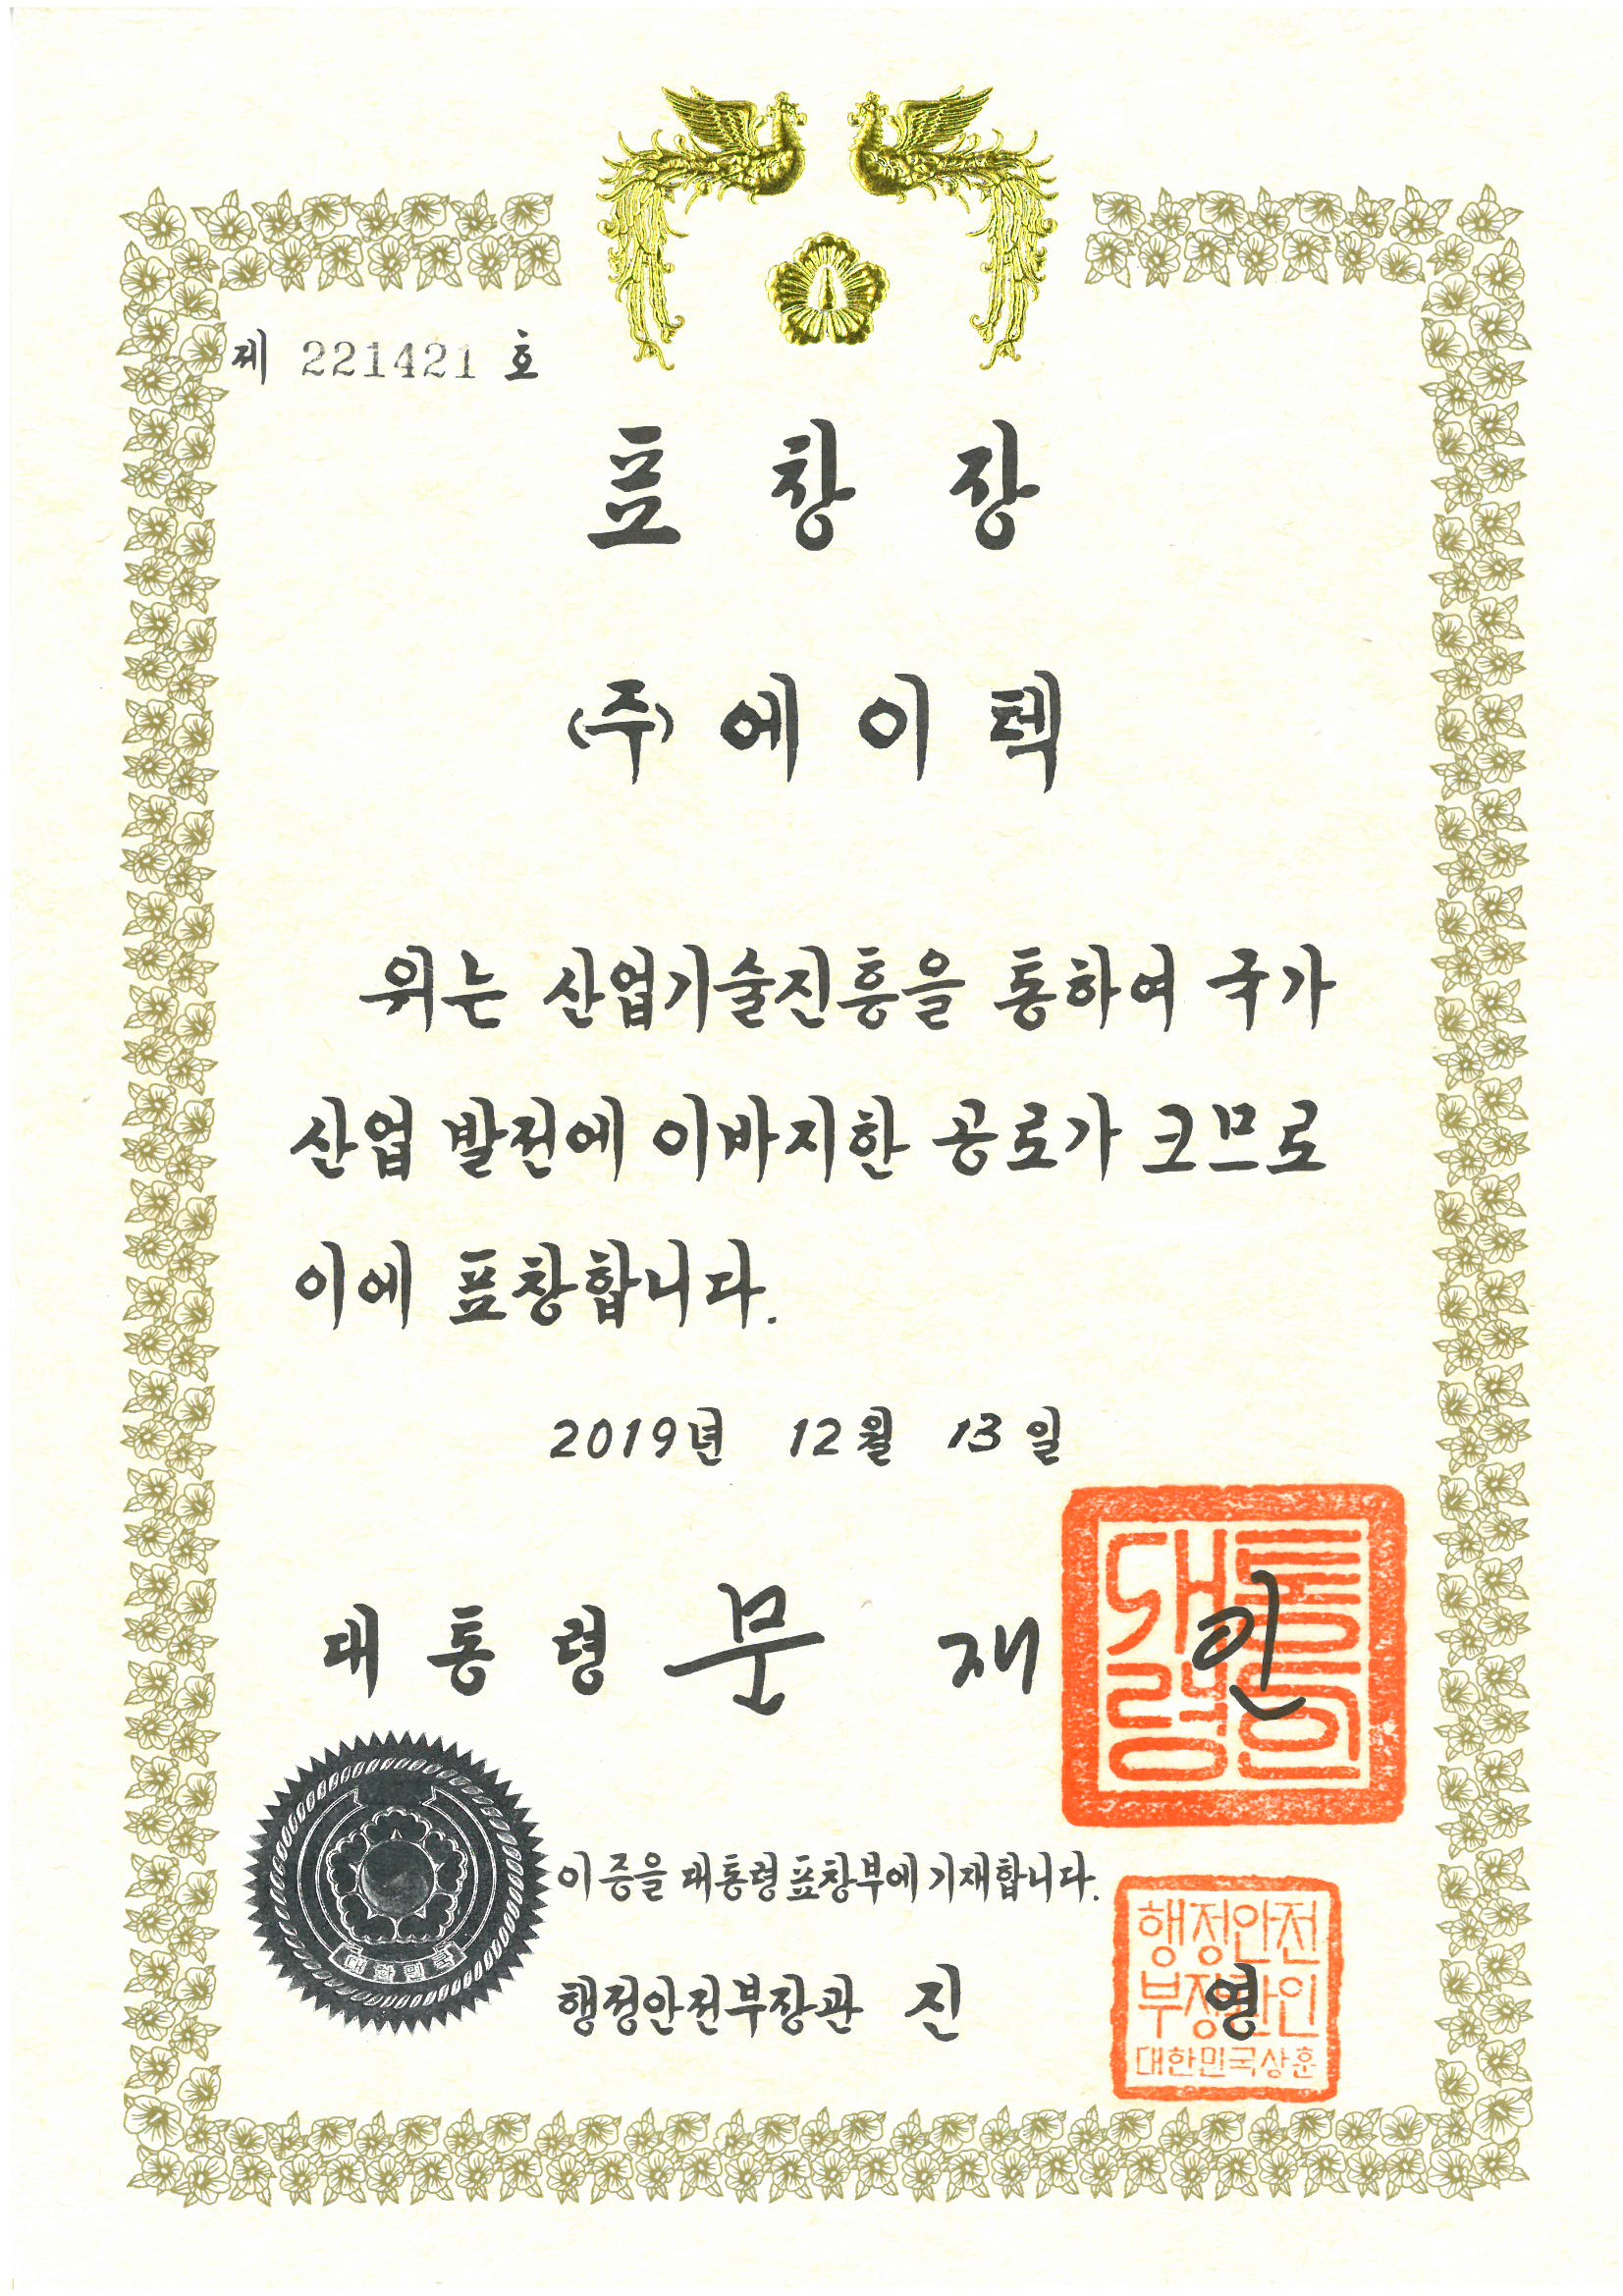 제 221421 호
표 창 장
(주) 에 이 텍
위는 산업기술진흥을 통하여 국가
산업 발전에 이바지한 공로가 크므로
이에 표창합니다.
2019년 12월 13일
대 통 령 문 재 인
대통령인
이 증을 대통령 표창부에 기재합니다.
행정안전부장관 진 영
행정안전
부장관인
대한민국상훈
대한민국